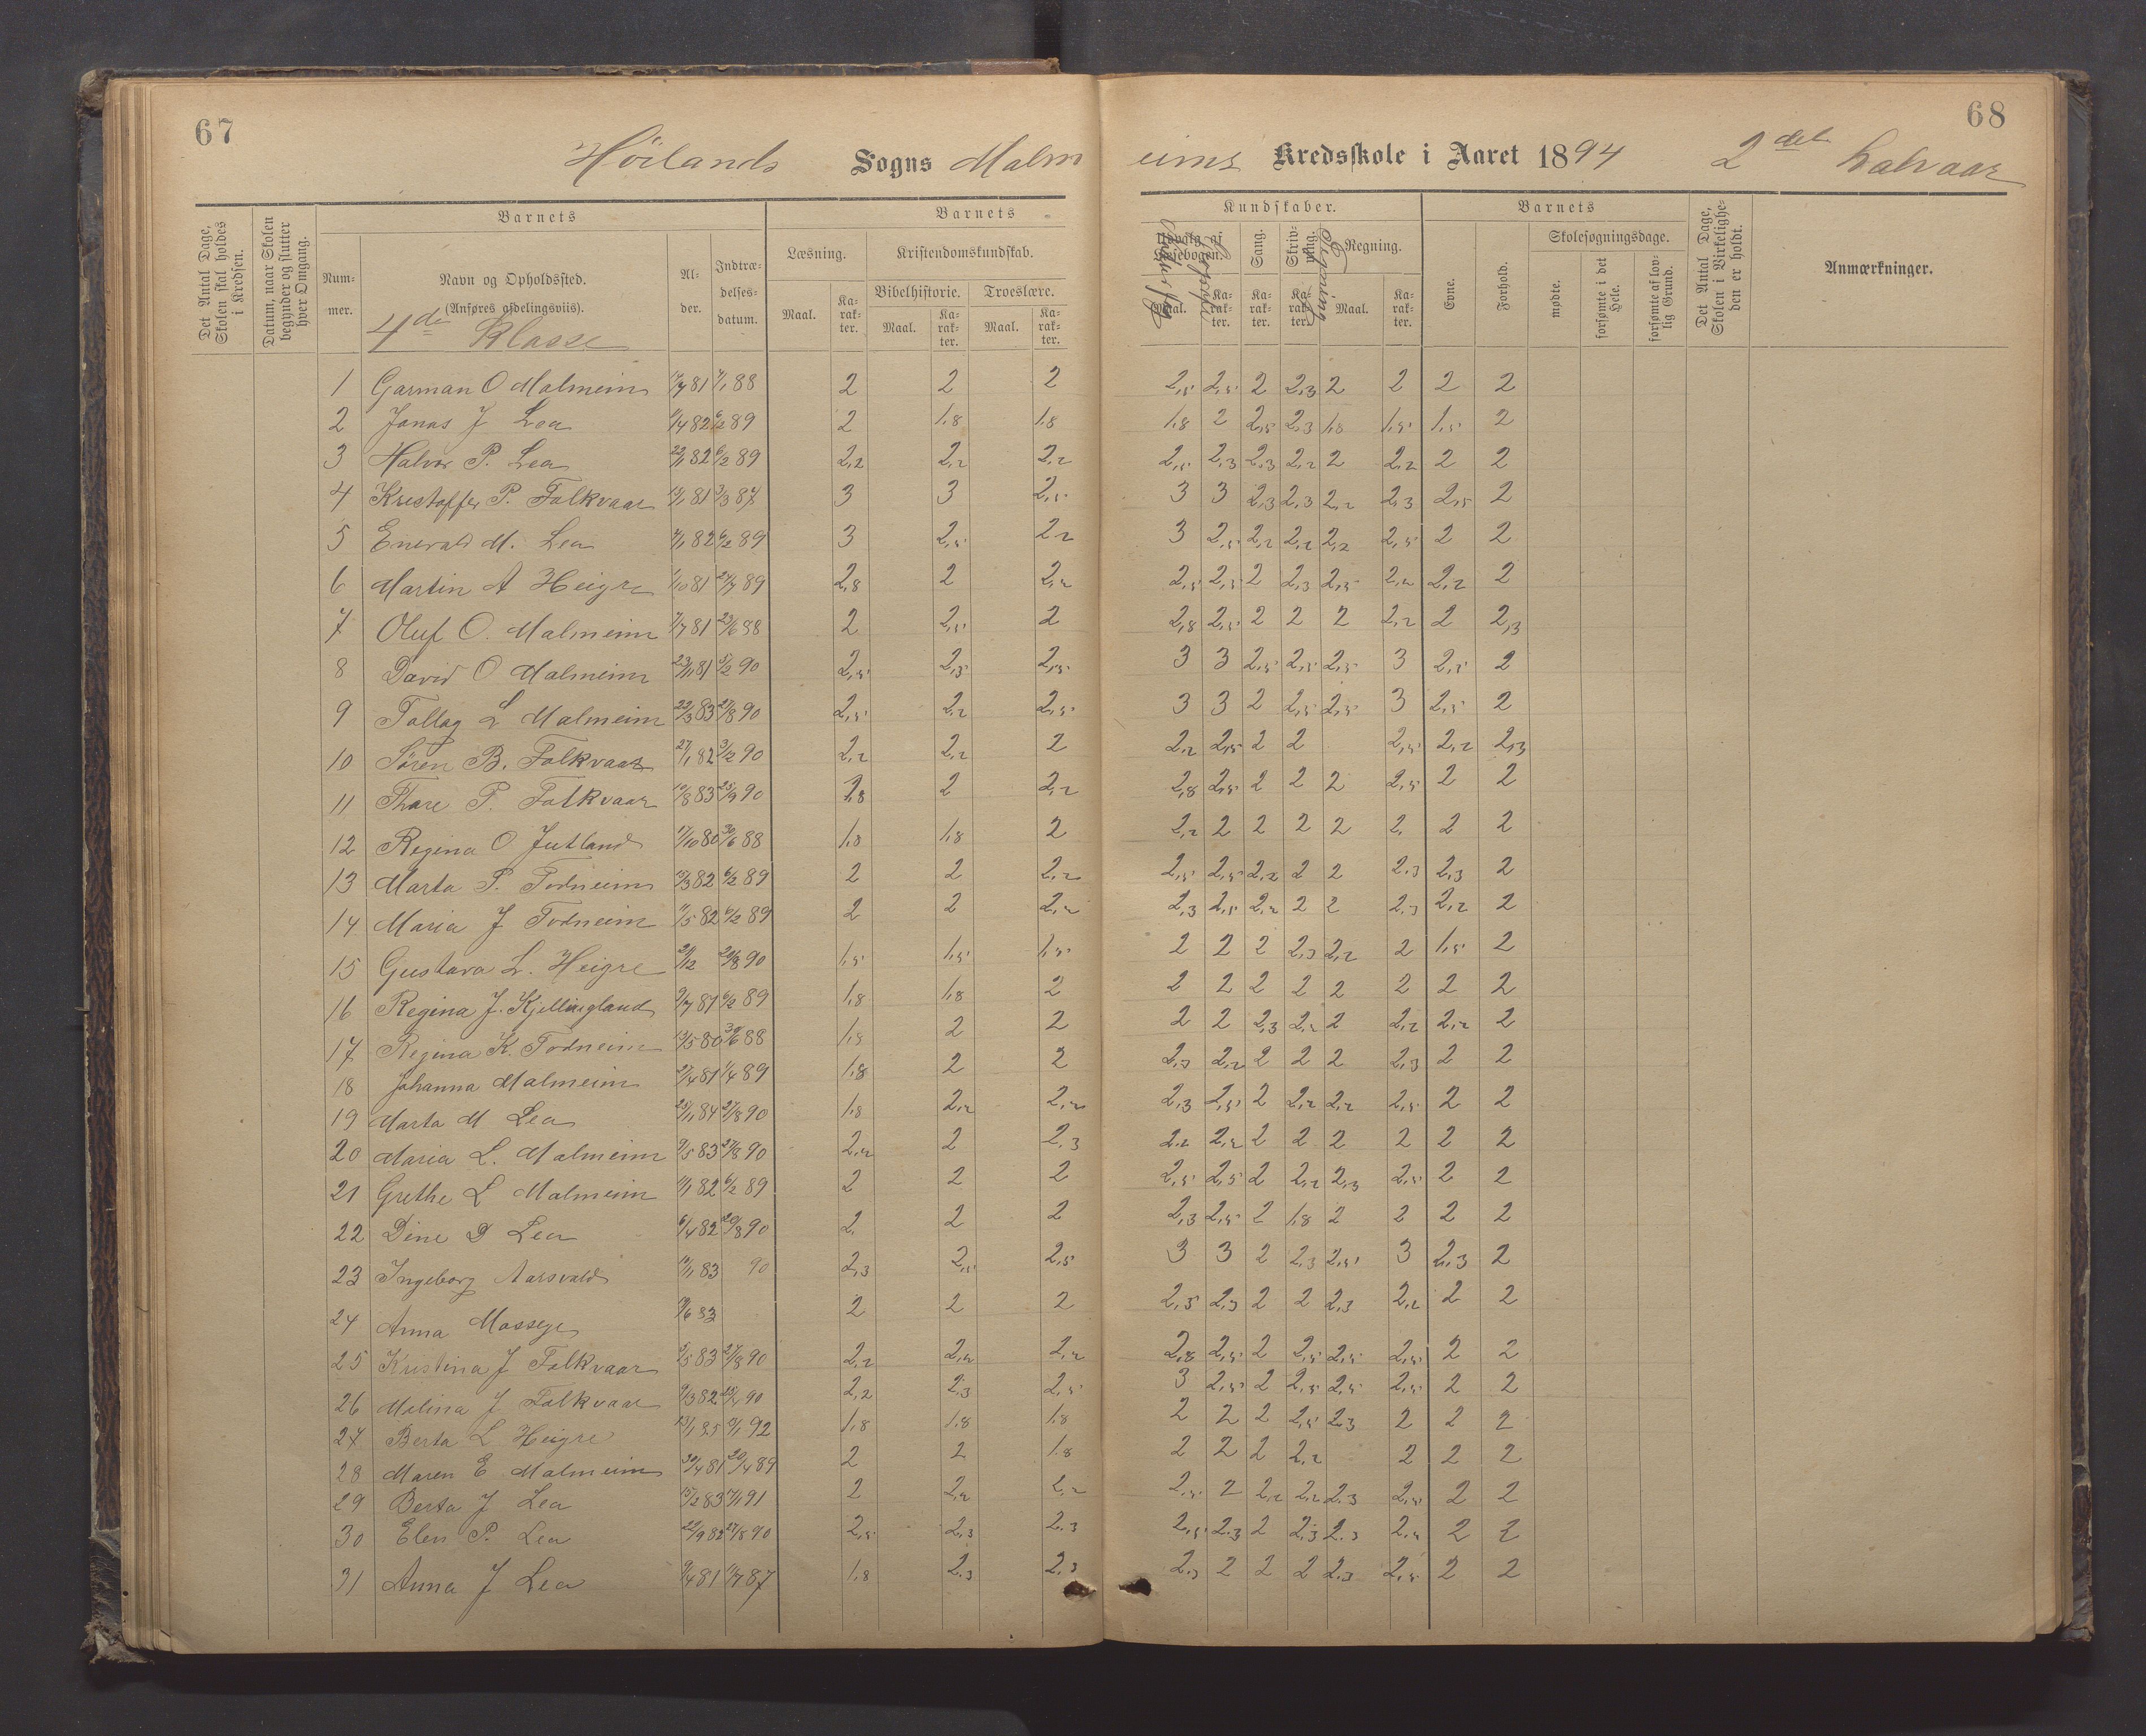 67
68
Höilands Sogns Malmeims Kredsskole i Aaret 1894 2det halvaar
Det Antal Dage, Skolen skal holdes i Kredsen.
Datum, naar Skolen begynder og slutter hver Omgang.
Barnets
Nummer.
Navn og Opholdssted.
(Anføres afdelingsviis).
4de Klasse
Alder.
Indtrædelsesdatum.
Barnets
Læsning.
Maal.
Karakter.
Kristendomskundskab.
Bibelhistorie.
Maal.
Karakter.
Troeslære.
Maal.
Karakter.
Kundskaber.
Udvalg af Læsebogen.
Maal.
Karakter.
Sang.
Karakter.
Skrivning.
Karakter.
Regning.
Maal.
Karakter.
Barnets
Evne.
Forhold.
Skolesøgningsdage.
mødte.
forsømte i det Hele.
forsømte af lovlig Grund.
Det Antal Dage, Skolen i Virkeligheden er holdt.
Anmærkninger.
1 Garman O Malmeim 81 88 2 2 2 2,5 2,5 2 2,3 2 2 2 2
2 Jonas J Lea 82 6/2 89 2 1,8 1,8 1,8 2 2,5 2,3 1,8 1,5 1,5 2
3 Halvor P. Lea 82 6/2 89 2,2 2,2 2,2 2,5 2,3 2,3 2,2 2 2,2 2 2
4 Kristoffer P. Folkvaar 81 3/3 87 3 3 2,5 3 3 2,3 2,3 2,2 2,3 2,5 2
5 Enevald M. Lea 82 6/2 89 3 2,5 2,2 3 2,5 2,2 2,2 2,2 2,5 2 2
6 Martin A Heigre 81 89 2,8 2 2,2 2,5 2,5 2 2,3 2,5 2,2 2,2 2
7 Oluf O. Malmeim 81 23/6 88 2 2,5 2 2,8 2,5 2 2 2 2,2 2 2,3
8 David O Malmeim 81 5/2 90 2,5 2,5 2,5 3 3 2,5 2,5 2,5 3 2,5 2
9 Tollag L Malmeim 22/3 83 27/8 90 2,5 2,2 2,5 3 3 2 2,5 2,5 3 2,5 2
10 Sören B. Folkvaar 27/1 82 3/12 90 2,2 2,2 2 2,2 2,5 2 2 2,5 2,2 2,3
11 Thore P. Folkvaar 83 25/9 90 2 2,2 2,8 2,5 2 2 2 2,5 2 2
12 Regina O Jutland 17/10 80 30/6 88 1,8 1,8 2 2,2 2 2 2 2 2, 2 2
13 Marta P. Todneim 82 6/2 89 2 2 2,2 2,5 2,5 2,2 2 2 2,3 2,3 2
14 Maria J Todneim 82 6/2 89 2 2 2,2 2,3 2,5 2,2 2 2 2,3 2,2 2
15 Gustava L. Heigre 90 1,5 1,5 1,5 2 2 2 2,3 2,2 2 1,5 2
16 Regina J. Kjellingland 81 6/2 89 1,8 1,8 2 2 2 2 2 2 2 2 2
17 Regina K. Todneim 80 30/6 88 1,8 2 2 2 2 2,3 2,2 2 2,2 2,2 2
18 Johanna Malmeim 81 89 1,8 2 2 2,3 2,2 2 2 2 2,3 2 2
19 Marta M Lea 84 27/8 90 1,8 2,2 2,2 2,3 2,5 2 2,2 2,2 2,5 2 2
20 Maria L. Malmeim 83 27/8 90 2,2 2 2,3 2,2 2,2 2 2 2 2 2 2
21 Grethe L Malmeim 82 6/2 89 2 2 2 2,5 2,5 2 2,2 2,3 2,5 2 2
22 Dine D Lea 6/4 82 90 2, 2 2 2,3 2,5 2 1,8 2 2 2 2
23 Ingeborg Aarsvold 83 90 2,3 2,5 2,5 3 3 2 2,3 2,5 3 2,3 2
24 Anna Mossege 83 2 2 2 2,5 2,3 2 2 2,3 2,2 2 2
25 Kristina J Folkvaar 83 27/8 90 2,2 2,2 2,2 2,8 2,5 2 2,5 2,5 2,5 2 2
26 Malina J Folkvaar 82 90 2,2 2,3 2,5 3 2,5 2 2,5 2,5 2,5 2 2
27 Berta L Heigre 85 92 1,8 1,8 1,8 2 2 2 2,5 2,3 2 2 2
28 Maren E Malmeim 30/4 81 89 2 2 1,8 2 2 2 2,2 2 2 2
29 Berta J Lea 15/2 83 91 2 2,2 2,2 2,5 2 2,2 2,2 2,3 2,5 2 2
30 Elen P. Lea 82 27/8 90 2,5 2,3 2,3 2,5 2,3 2 2,3 2,3 2,2 2 2
31 Anna J Lea 81 87 1,8 2,3 2,3 2,3 2 2 2 2,3 2,5 2 2